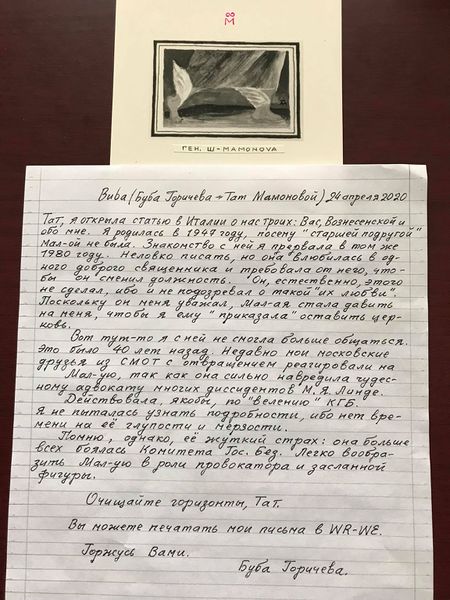 ∞
M
ГЕН. Ш-MAMONOVA
Buba (Буба Горичева → Тат Мамоновой) 24 апреля 2020
Тат, я открыла статью в Италии о нас троих: Вас, Вознесенской и
обо мне. Я родилась в 1947 году, посему "старшей подругой"
Мал-ой не была. Знакомство с ней я прервала в том же
1980 году. Неловко писать, но она влюбилась в од-
ного доброго священника и требовала от него, что-
бы он сменил должность. Он, естественно, этого
не сделал, ибо и не подозревал о такой "их любви".
Поскольку он меня уважал, Мал-ая стала давить
на меня, чтобы я ему "приказала" оставить цер-
ковь.
Вот тут-то я с ней не смогла больше общаться.
Это было 40 лет назад. Недавно мои московские
друзья из СМОТ с отвращением реагировали на
Мал-ую, так как она сильно навредила чудес-
ному адвокату многих диссидентов М.Я. Линде.
Действовала, якобы, по "велению" КГБ.
Я не питалась узнать подробности, ибо нет вре-
мени на её глупости и мерзости.
Помню, однако, её жуткий страх: она больше
всех боялась Комитета Гос. Без. Легко вообра-
зить Мал-ую в роли провокатора и засланной
фигуры.
Очищайте горизонты, Тат.
Вы можете печатать мои письма в WR-WE.
Горжусь Вами.
Буба Горичева.